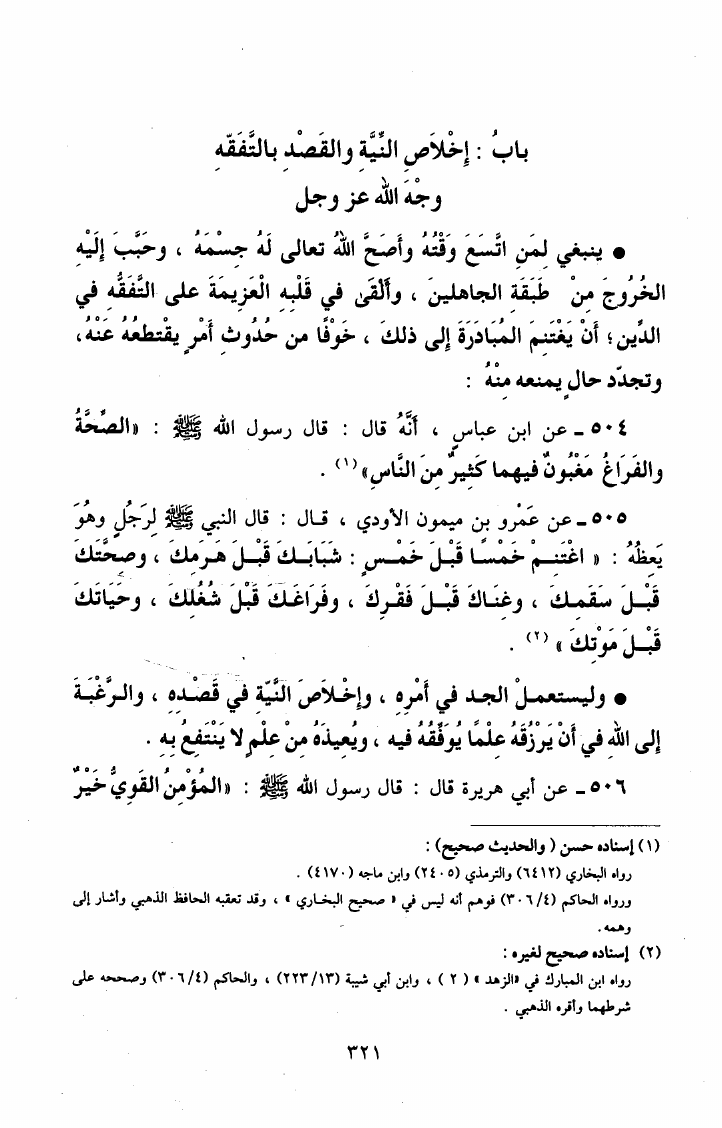 بابُ : إِخْلاَصِ النِّيَّةِ والقَصْدِ بالتَّفَقّهِ
وجْهَ الله عز وجل
● ينبغي لمَنِ اتَّسَعَ وَقْتُهُ وأَصَحَّ اللهُ تعالى لَهُ جِسْمَهُ ، وحَبَّبَ إِلَيْهِ
الخُرُوجَ مِنْ طَبَقَةِ الجاهلينَ ، وأَلْقَىٰ في قَلْبِهِ الْعَزِيمَةَ على التَّفَقُّهِ في
الدِّين؛ أَنْ يَغْتَنِمَ المُبَادَرَةَ إلى ذلكَ ، خَوْفًا من حُدُوثِ أَمْرٍ يقْتطعُهُ عَنْهُ،
وتجدّد حالٍ يمنعه مِنْهُ :
٥٠٤ ـ عن ابن عباسٍ ، أَنَّهُ قال : قال رسول الله ﷺ : «الصِّحَّةُ
والفَرَاغُ مَغْبُونٌ فيهما كَثِيرٌ مِنَ النَّاسِ»(١) .
٥٠٥ ـ عن عَمْرِو بنِ ميمون الأودي ، قـال : قال النبي ﷺ لِرَجُلٍ وهُوَ
يَعِظُهُ : « اغْتَنِـمْ خَمْسًا قَبْلَ خَمْـسٍ : شَبَابَـكَ قَبْـلَ هَـرمِـكَ ، وصحَّتَكَ
قَبْـلَ سَقَمِـكَ ، وغِنَـاكَ قَبْـلَ فَقْـرِكَ ، وفَرَاغَـكَ قَبْـلَ شُغُلِكَ ، وحَيَاتَكَ
قَبْـلَ مَوْتِكَ » (٢) .
● وليستعمـلْ الجـد في أَمْرِه ، وإِخْلاَصَ النِّيّة في قَصْدِه ، والـرَّغْبَـةَ
إلى اللهِ في أَنْ يَرْزُقَهُ عِلْمًا يُوَفِّقُهُ فيه ، ويُعِيذَهُ مِنْ عِلْمٍ لا يَنْتَفِعُ بِهِ .
٥٠٦ ـ عن أبي هريرة قال : قال رسول الله ﷺ : «المُؤْمِنُ القَوِيُّ خَيْرٌ
(١) إسناده حسن ( والحديث صحيح) :
رواه البخاري (٦٤١٢) والترمذي (٢٤٠٥) وابن ماجه (٤١٧٠) .
ورواه الحاكم (٣٠٦/٤) فوهم أنه ليس في « صحيح البخـاري » ، وقد تعقبه الحافظ الذهبي وأشار إلى
وهمه.
(٢) إسناده صحيح لغيره :
رواه ابن المبارك في «الزهد » ( ٢ ) ، وابن أبي شيبة (٢٢٣/١٣) ، والحاكم (٣٠٦/٤) وصححه على
شرطهما وأقره الذهبي .
٣٢١